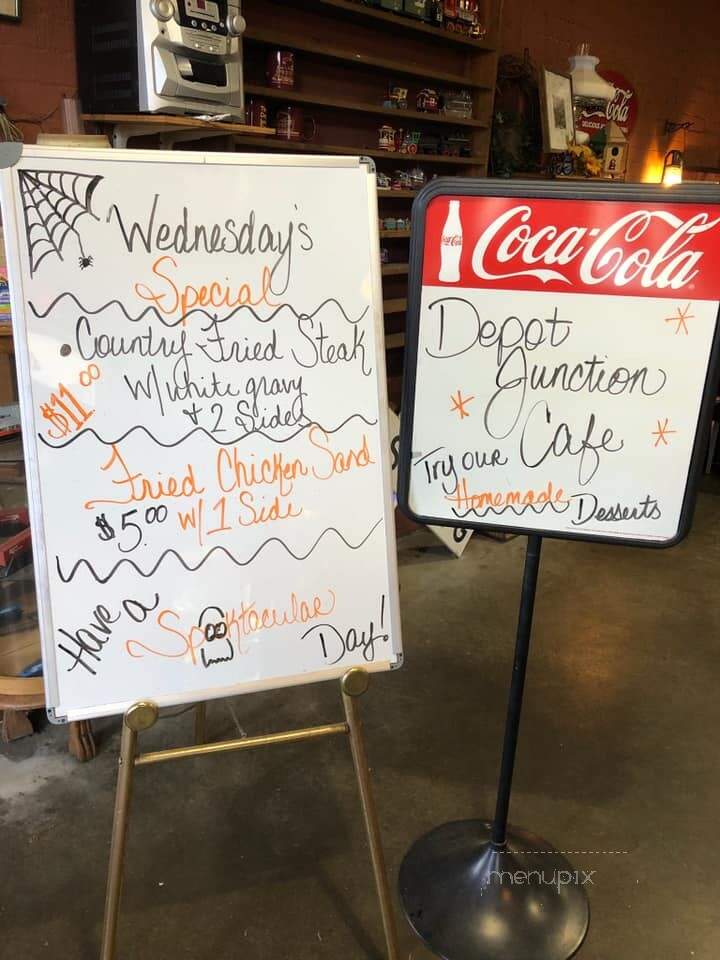 Wednesday's
Special
• Country Fried Steak
$11.00
w/ white gravy
+ 2 Sides
Fried Chicken Sand
$5.00 w/ 1 Side
Have a
Spooktacular
Day!
Coca-Cola
Depot
Junction
Cafe
Try our
Homemade Desserts
Cola
menupix